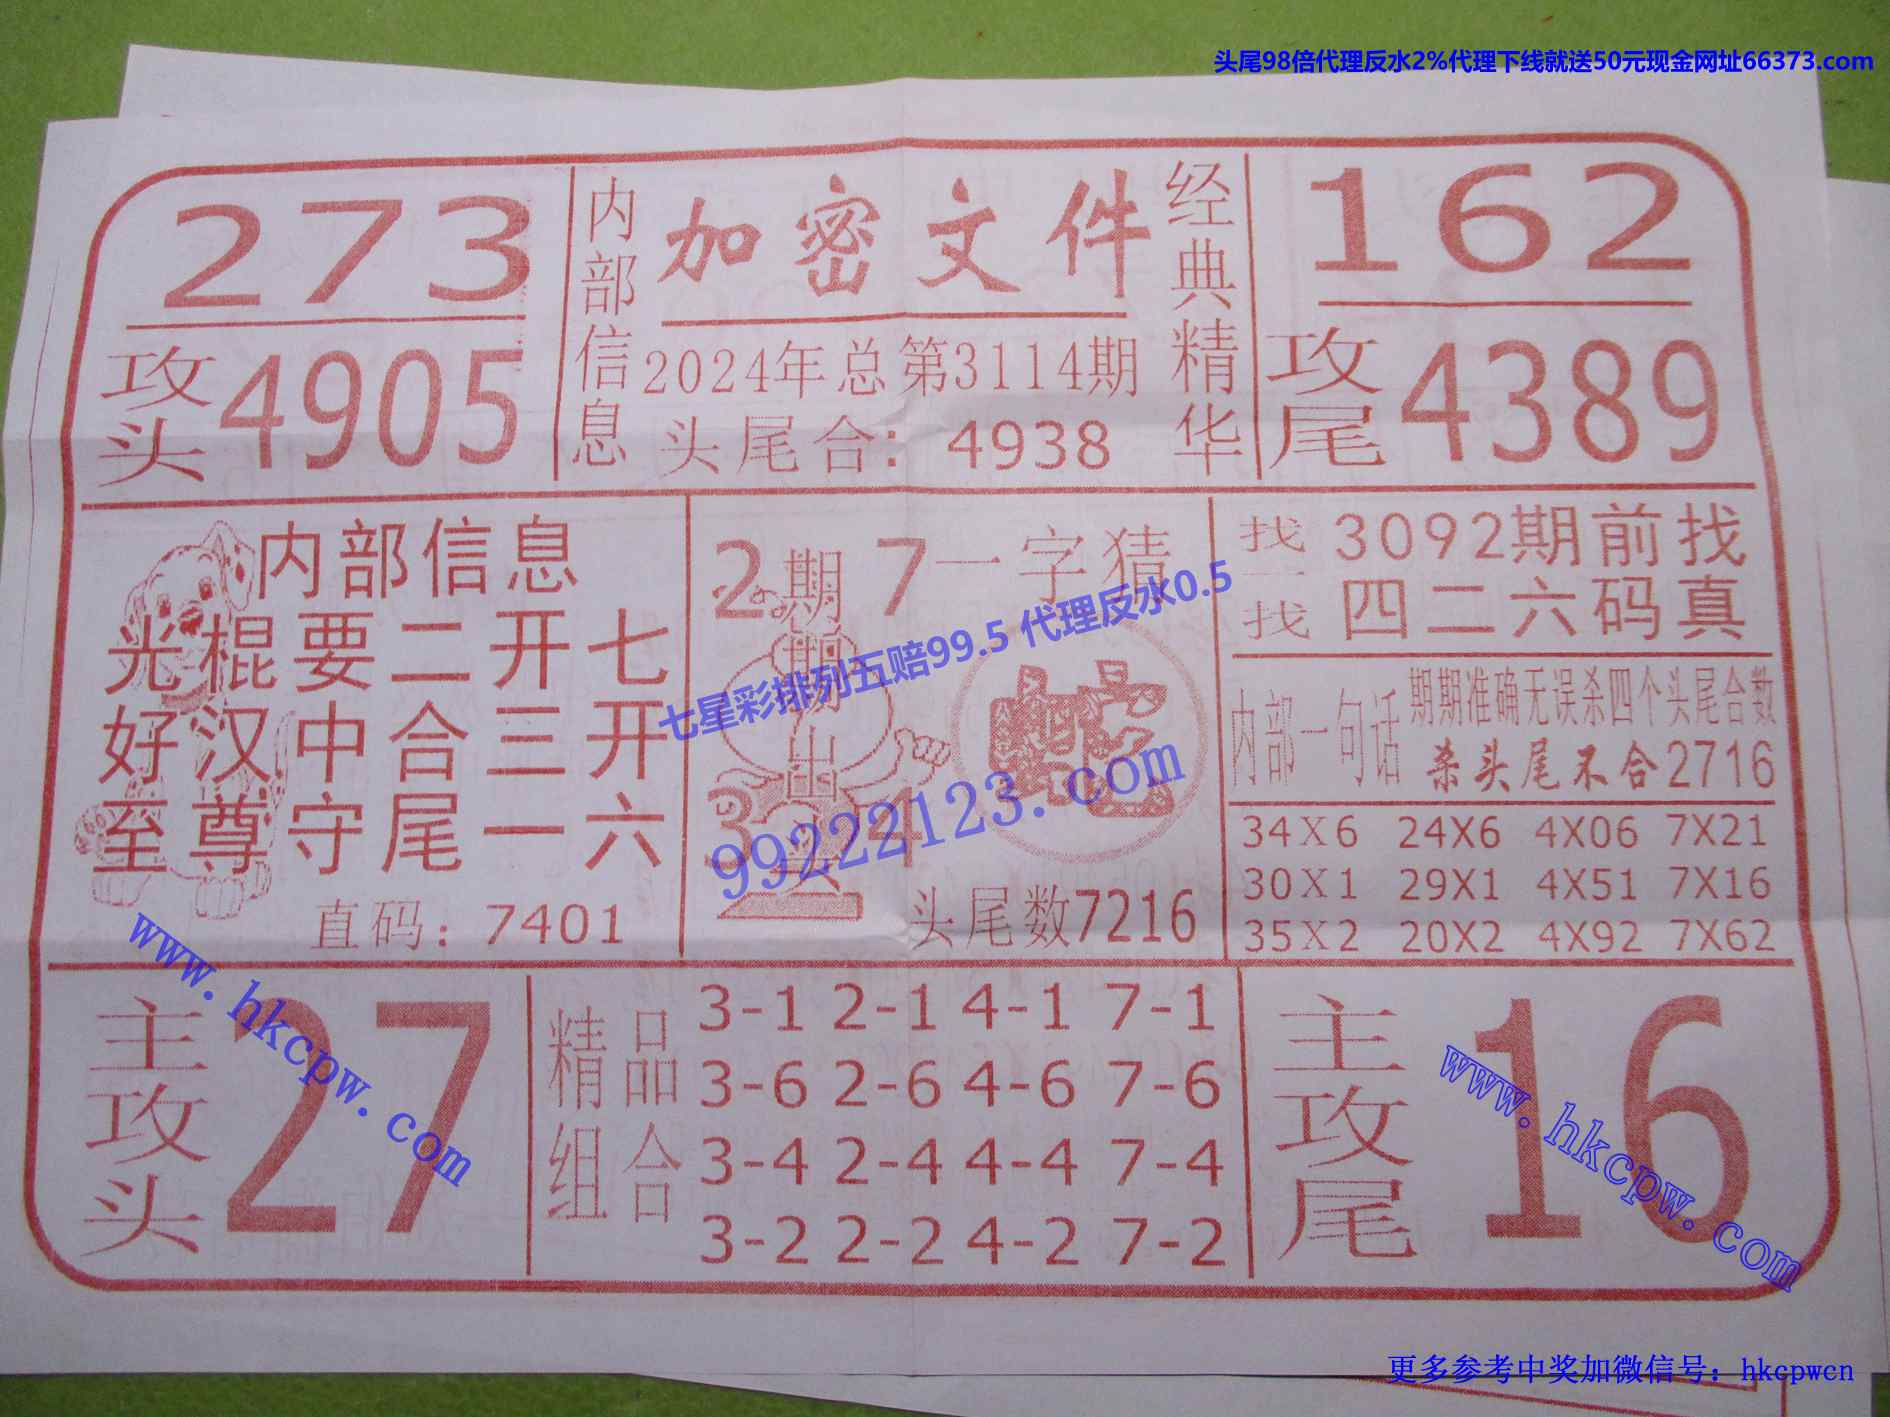 头尾98倍代理反水2%代理下线就送50元现金网址66373.com
273
攻头 4905
内部信息
加密文件
2024年总第3114期
头尾合：4938
经典精华
162
攻尾 4389
内部信息
光棍要二开七
好汉中合三开
至尊守尾一六
直码：7401
2 7
3 4
期期出
一字猜
头尾数7216
找一找
3092期前找
四二六码真
内部一句话
期期准确无误杀四个头尾合数
杀头尾不合2716
34X6 24X6 4X06 7X21
30X1 29X1 4X51 7X16
35X2 20X2 4X92 7X62
七星彩排列五赔99.5 代理反水0.5
99222123.com
主攻头 27
精品组合
3-1 2-1 4-1 7-1
3-6 2-6 4-6 7-6
3-4 2-4 4-4 7-4
3-2 2-2 4-2 7-2
主攻尾 16
www.hkcpw.com
www.hkcpw.com
更多参考中奖加微信号：hkcpwcn